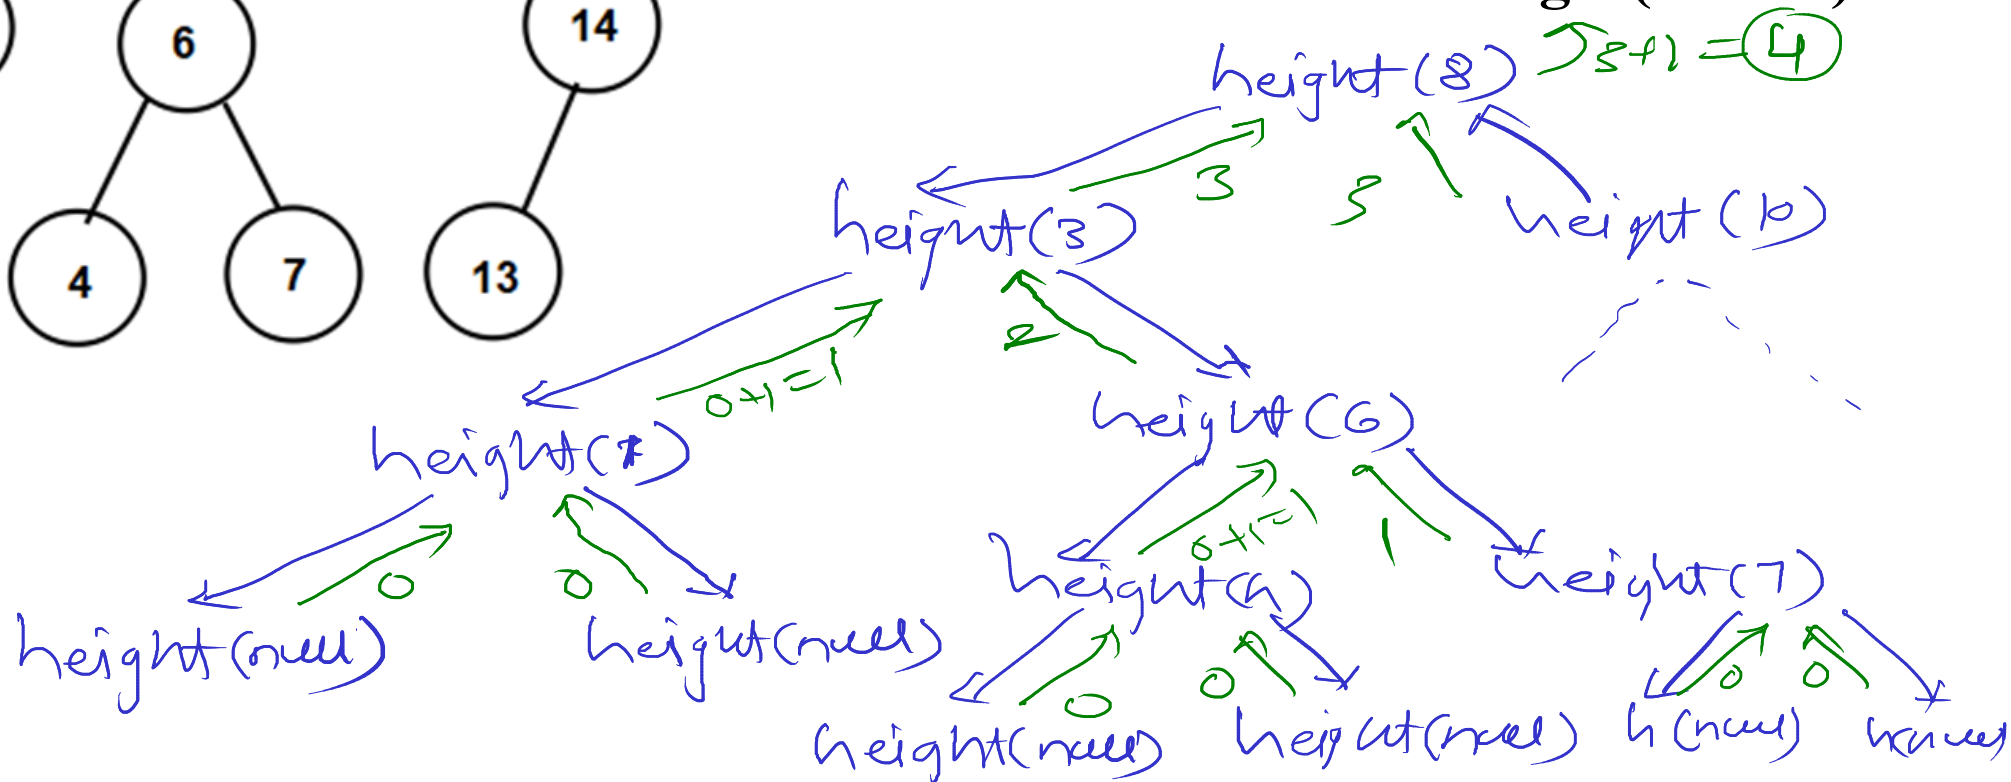 6
14
height(8) 3+1 = 4
3
3
height(3)
height(10)
4
7
13
2
0+1=1
height(1)
height(6)
0+1=1
1
0
0
height(4)
height(7)
height(null)
height(null)
0
0
0
0
height(null)
height(null)
h(null)
h(null)